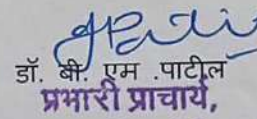 डॉ. बी. एम .पाटील
प्रभारी प्राचार्य,